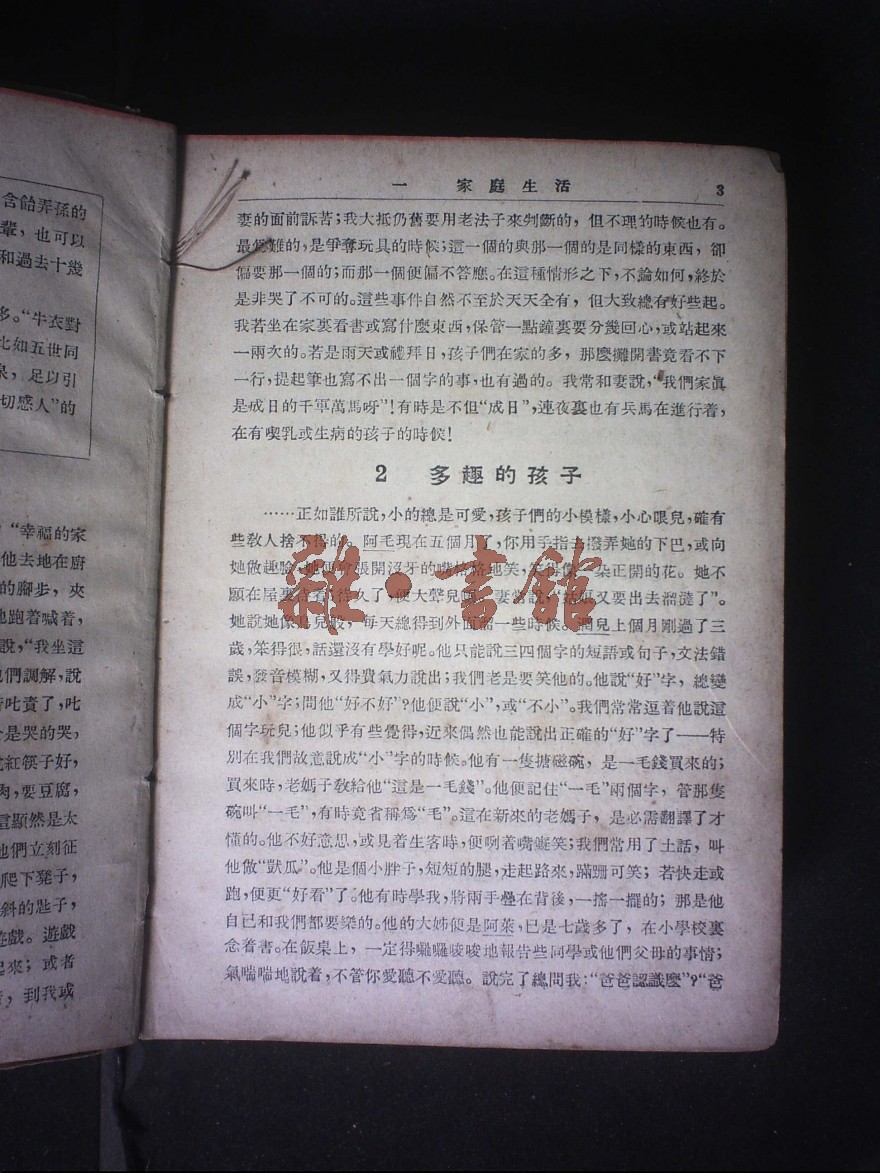 含飴弄孫的
輩，也可以
和過去十幾
多。“牛衣對
比如五世同
泉，足以引
切感人”的
“幸福的家
他去地在廚
的脚步，夾
地跑着喊着，
說，“我坐這
他們調解，說
叱責了，叱
是哭的哭，
紅筷子好，
肉，要豆腐，
這顯然是太
他們立刻征
爬下凳子，
斜的匙子，
遊戲。遊戲
起來；或者
，到我或
一 家庭生活 3
妻的面前訴苦；我大抵仍舊要用老法子來判斷的，但不理的時候也有。
最為難的，是爭奪玩具的時候；這一個的與那一個的是同樣的東西，卻
偏要那一個的；而那一個便偏不答應。在這種情形之下，不論如何，終於
是非哭了不可的。這些事件自然不至於天天全有，但大致總有好些起。
我若坐在家裏看書或寫什麼東西，保管一點鐘裏要分幾回心，或站起來
一兩次的。若是雨天或禮拜日，孩子們在家的多，那麼攤開書竟看不下
一行，提起筆也寫不出一個字的事，也有過的。我常和妻說，“我們家真
是成日的千軍萬馬呀”！有時是不但“成日”，連夜裏也有兵馬在進行着，
在有喫乳或生病的孩子的時候！
2 多趣的孩子
……正如誰所說，小的總是可愛，孩子們的小模樣，小心眼兒，確有
些教人捨不得的。阿毛現在五個月了，你用手指去撥弄她的下巴，或向
她做趣臉，她便會張開沒牙的嘴格格地笑，笑得像一朵正開的花。她不
願在屋裏待着；待久了，便大聲兒嚷。妻常說，“姑娘又要出去溜達了”。
她說她像鳥兒般，每天總得到外面溜一些時候。潤兒上個月剛過了三
歲，笨得很，話還沒有學好呢。他只能說三四個字的短語或句子，文法錯
誤，發音模糊，又得費氣力說出；我們老是要笑他的。他說“好”字，總變
成“小”字；問他“好不好”？他便說“小”，或“不小”。我們常常逗着他說這
個字玩兒；他似乎有些覺得，近來偶然也能說出正確的“好”字了——特
別在我們故意說成“小”字的時候。他有一隻搪磁碗，是一毛錢買來的；
買來時，老媽子教給他“這是一毛錢”。他便記住“一毛”兩個字，管那隻
碗叫“一毛”，有時竟省稱爲“毛”。這在新來的老媽子，是必需翻譯了才
懂的。他不好意思，或見着生客時，便咧着嘴癡笑；我們常用了土話，叫
他做“獃瓜”。他是個小胖子，短短的腿，走起路來，蹣跚可笑；若快走或
跑，便更“好看”了。他有時學我，將兩手疊在背後，一搖一擺的；那是他
自己和我們都要樂的。他的大姊便是阿萊，已是七歲多了，在小學校裏
念着書。在飯桌上，一定得囉囉唆唆地報告些同學或他們父母的事情；
氣喘喘地說着，不管你愛聽不愛聽。說完了總問我：“爸爸認識麼”？“爸
雜·書館